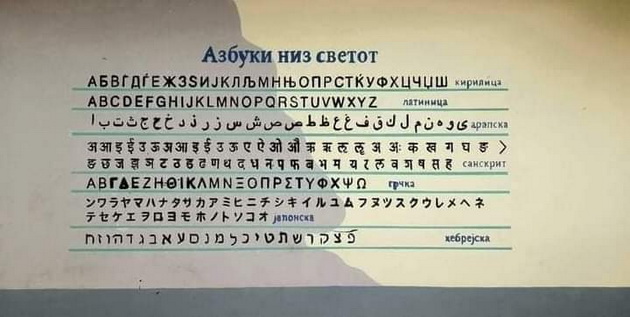 Азбуки низ светот
АБВГДЃЕЖЗЅИЈКЛЉМНЊОПРСТЌУФХЦЧЏШ кирилица
ABCDEFGHIJKLMNOPQRSTUVWXYZ латиница
ا ب ت ث ج ح خ د ذ ر ز س ش ص ض ط ظ ع غ ف ق ك ل م ن ه و ى арапска
अ आ इ ई उ ऊ ऋ आ इ ई उ ऊ ए ऐ ओ औ ऋ ॠ ऌ ॡ अं अः क ख ग घ ङ
ङ छ ज झ ञ ट ठ ड ढ ण त थ द ध न प फ ब भ म य र ल व श ष स ह санскрит
ΑΒΓΔΕΖΗΘΙΚΛΜΝΞΟΠΡΣΤΥΦΧΨΩ грчка
ンワラヤマハナタサカアミヒニチシキイルユムフヌツスクウレメヘネ
テセケエヲロヨモホノトソコオ јапонска
פצקרשתטיכלמנסעאבגדהוזח хебрејска